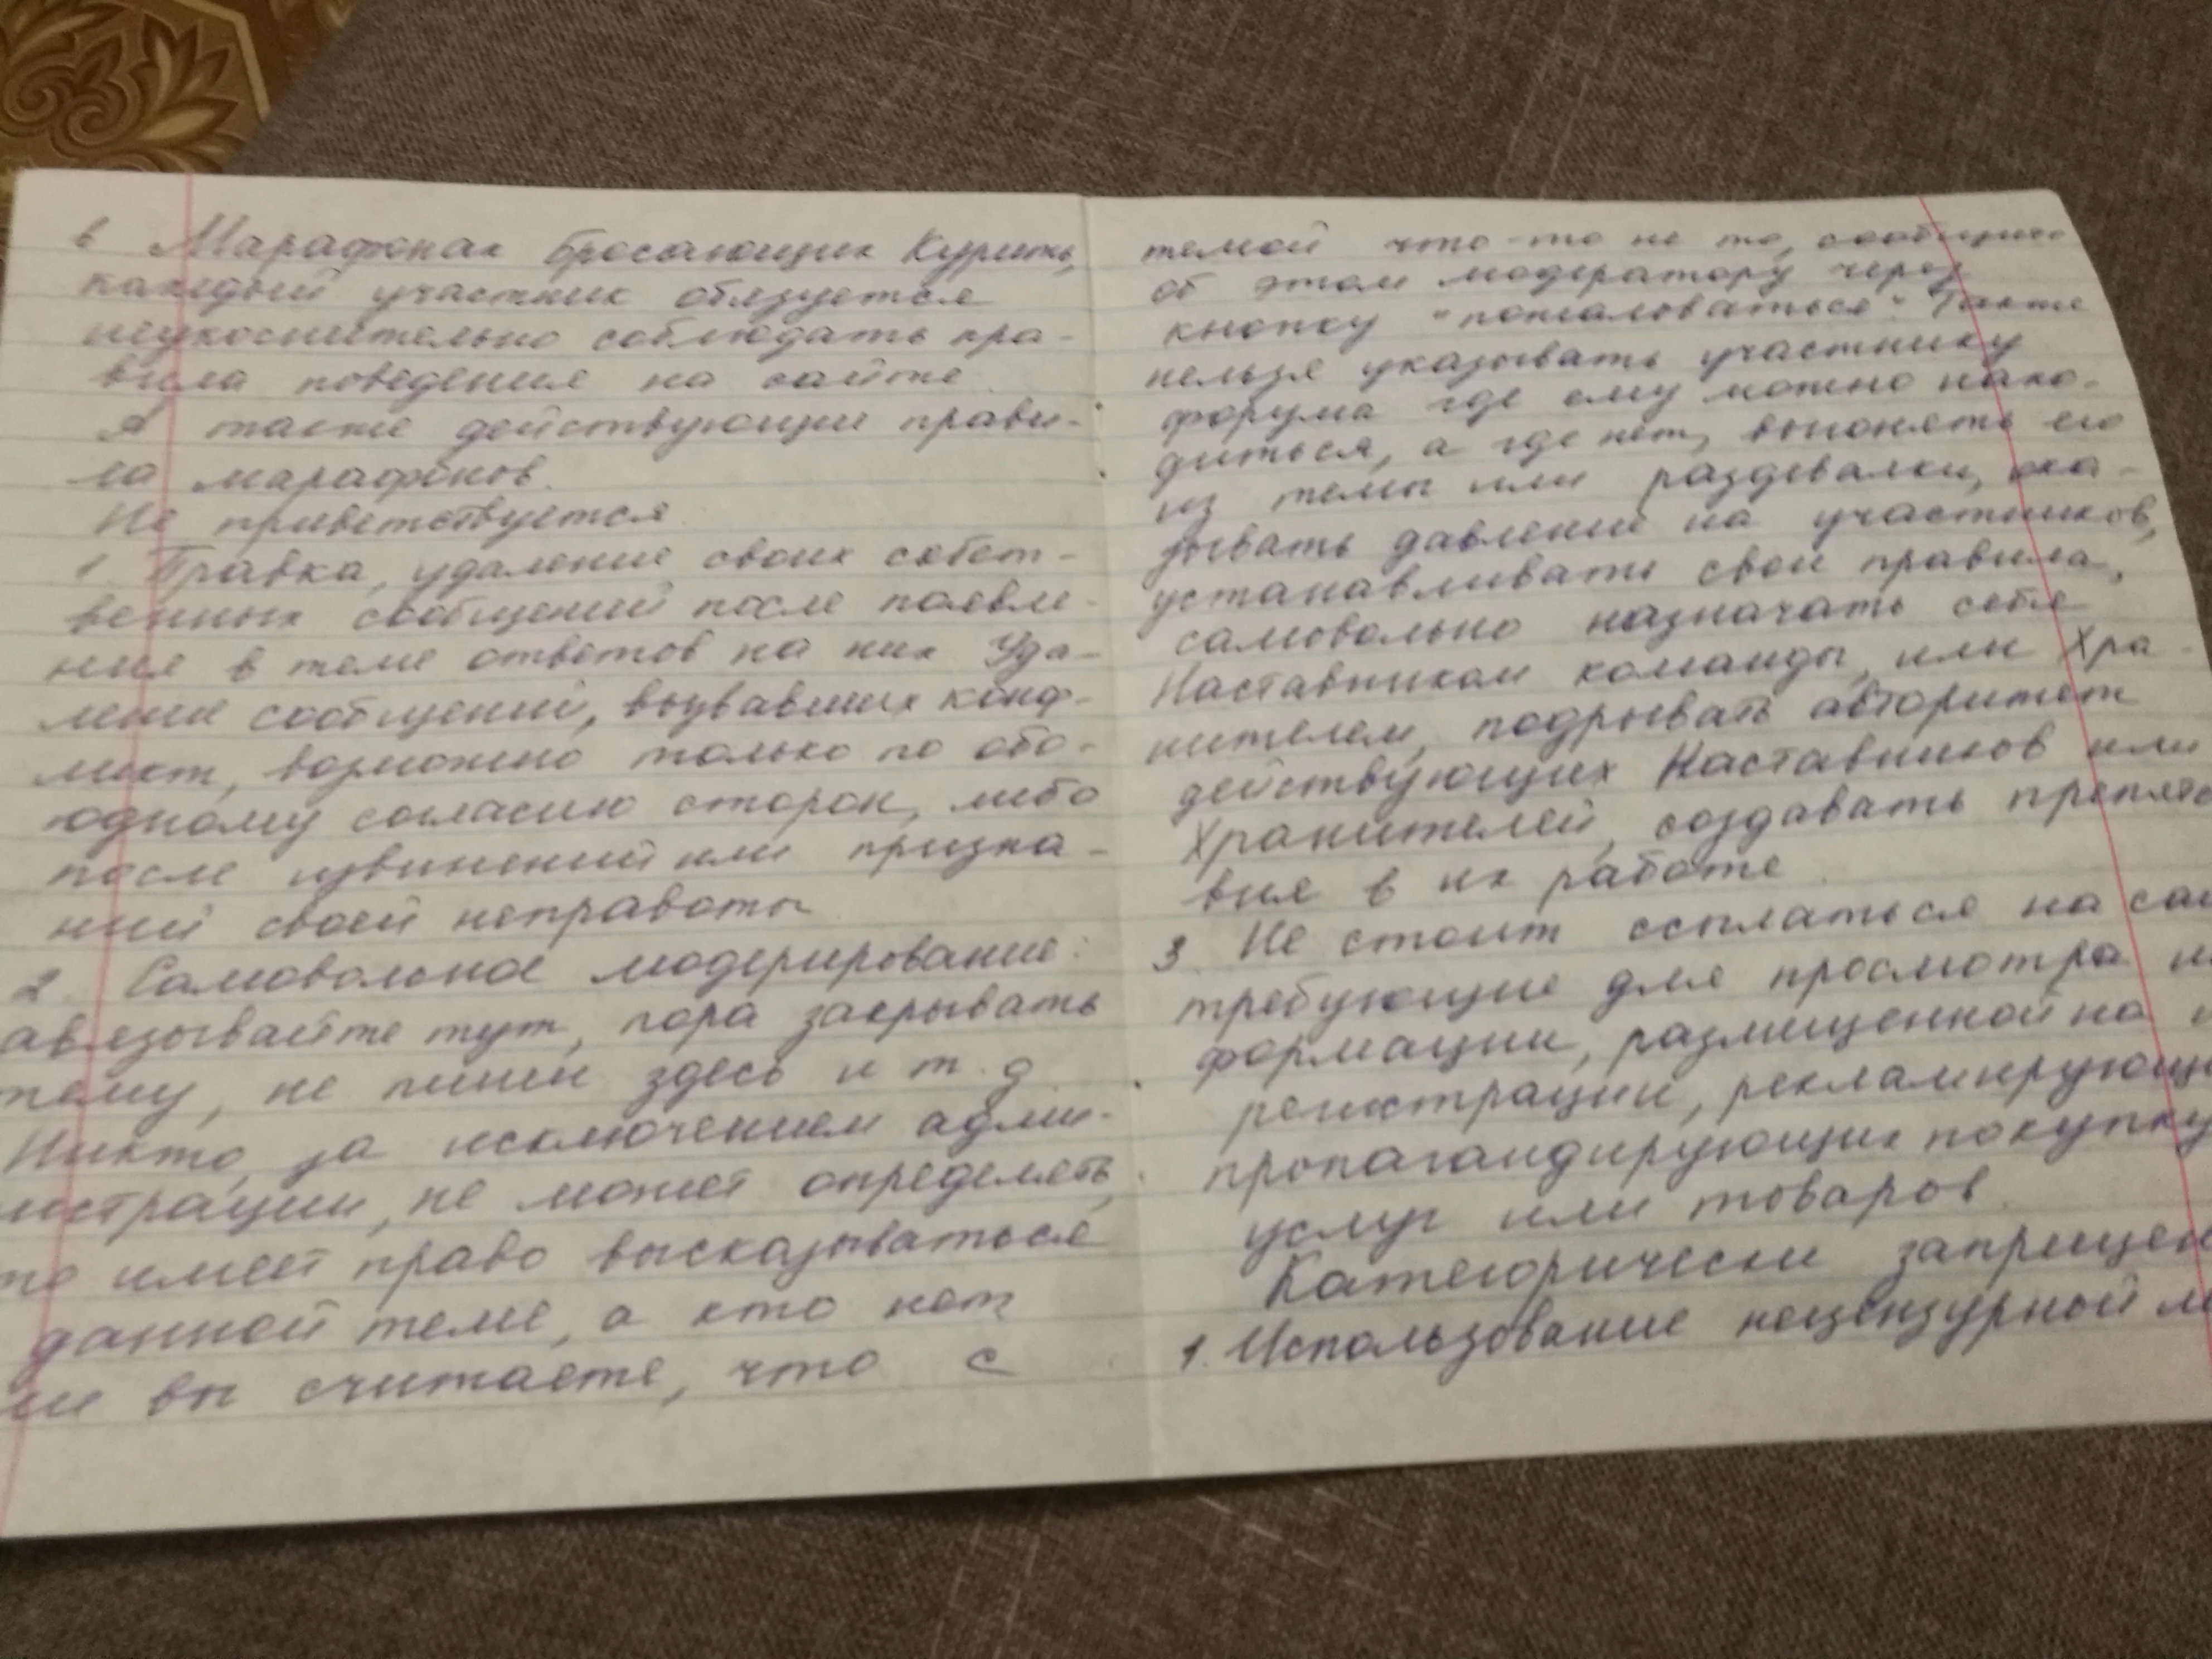 в Марафонах бросающих Курить,
каждый участник обязуется
неукоснительно соблюдать пра-
вила поведения на сайте.
А также действующие прави-
ла марафонов.
Не приветствуется
1. Правка, удаление своих собст-
венных сообщений после появле-
ния в теме ответов на них. Уда-
ление сообщений, вызвавших конф-
ликт, возможно только по обо-
юдному согласию сторон, либо
после извинений или призна-
ний своей неправоты
2. Самовольное модерирование:
авязывайте тут, пора закрывать
тему, не пиши здесь и т.д.
Никто, за исключением адми-
нистрации, не может определять,
то имеет право высказываться
данной теме, а кто нет
ли вы считаете, что с
темой что-то не то, сообщите
об этом модератору через
кнопку "пожаловаться". Также
нельзя указывать участнику
форума где ему можно нахо-
диться, а где нет, выгонять его
из темы или раздевалки, ока-
зывать давление на участников,
устанавливать свои правила,
самовольно назначать себя
Наставником команды, или Хра-
нителем, подрывать авторитет
действующих Наставников или
Хранителей, создавать препятс
вия в их работе.
3. Не стоит ссылаться на сай
требующие для просмотра ин
формации, размещенной на н
регистрации, рекламирующи
пропагандирующих покупку
услуг или товаров.
Категорически запрещен
1. Использование нецензурной л